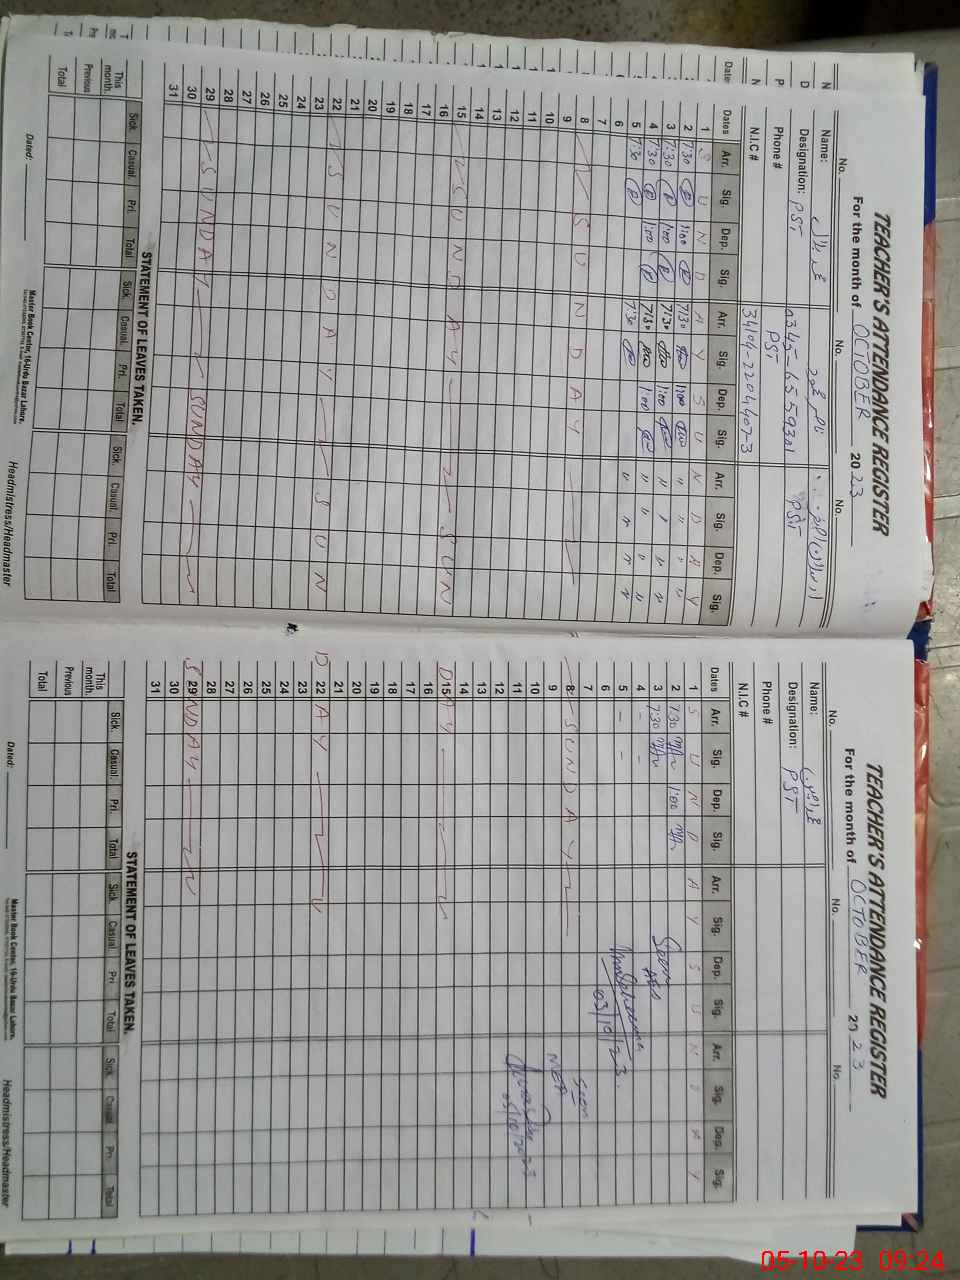 TEACHER'S ATTENDANCE REGISTER
For the month of OCTOBER 2023
No. No. No.
Name:
Designation: PST 0345-6559301 PST
Phone # PST
N.I.C # 34104-2204407-3
Dates Arr. Sig. Dep. Sig. Arr. Sig. Dep. Sig. Arr. Sig. Dep. Sig.
1 S U N D A Y S U N D A Y
2 7:30 1:00 7:30 1:00 " " " "
3 7:30 1:00 7:30 1:00 " " " "
4 7:30 1:00 7:30 1:00 " " " "
5 7:30 7:30
6
7
8 S U N D A Y
9
10
11
12
13
14
15 SUNDAY SUN
16
17
18
19
20
21
22 SUNDAY SUN
23
24
25
26
27
28
29 SUNDAY SUNDAY
30
31
STATEMENT OF LEAVES TAKEN.
Sick. Casual. Pri. Total Sick. Casual. Pri. Total Sick. Casual. Pri. Total
This month.
Previous
Total
Dated:
Master Book Center, 16-Urdu Bazar Lahore.
Headmistress/Headmaster
TEACHER'S ATTENDANCE REGISTER
For the month of OCTOBER 2023
No. No. No.
Name:
Designation: PST
Phone #
N.I.C #
Dates Arr. Sig. Dep. Sig. Arr. Sig. Dep. Sig. Arr. Sig. Dep. Sig.
1 S U N D A Y S U N D A Y
2 7:30 1:00
3 7:30
4 - -
5 - -
6
7
8 SUNDAY
9
10
11
12
13
14
15 DAY
16
17
18
19
20
21
22 DAY
23
24
25
26
27
28
29 SUNDAY
30
31
Seen
03/10/23.
Seen
MEA
05/10/2023
STATEMENT OF LEAVES TAKEN.
Sick. Casual. Pri. Total Sick. Casual. Pri Total Sick. Casual Pri. Total
This month.
Previous
Total
Dated:
Master Book Center, 16-Urdu Bazar Lahore.
Headmistress/Headmaster
05-10-23 09:24